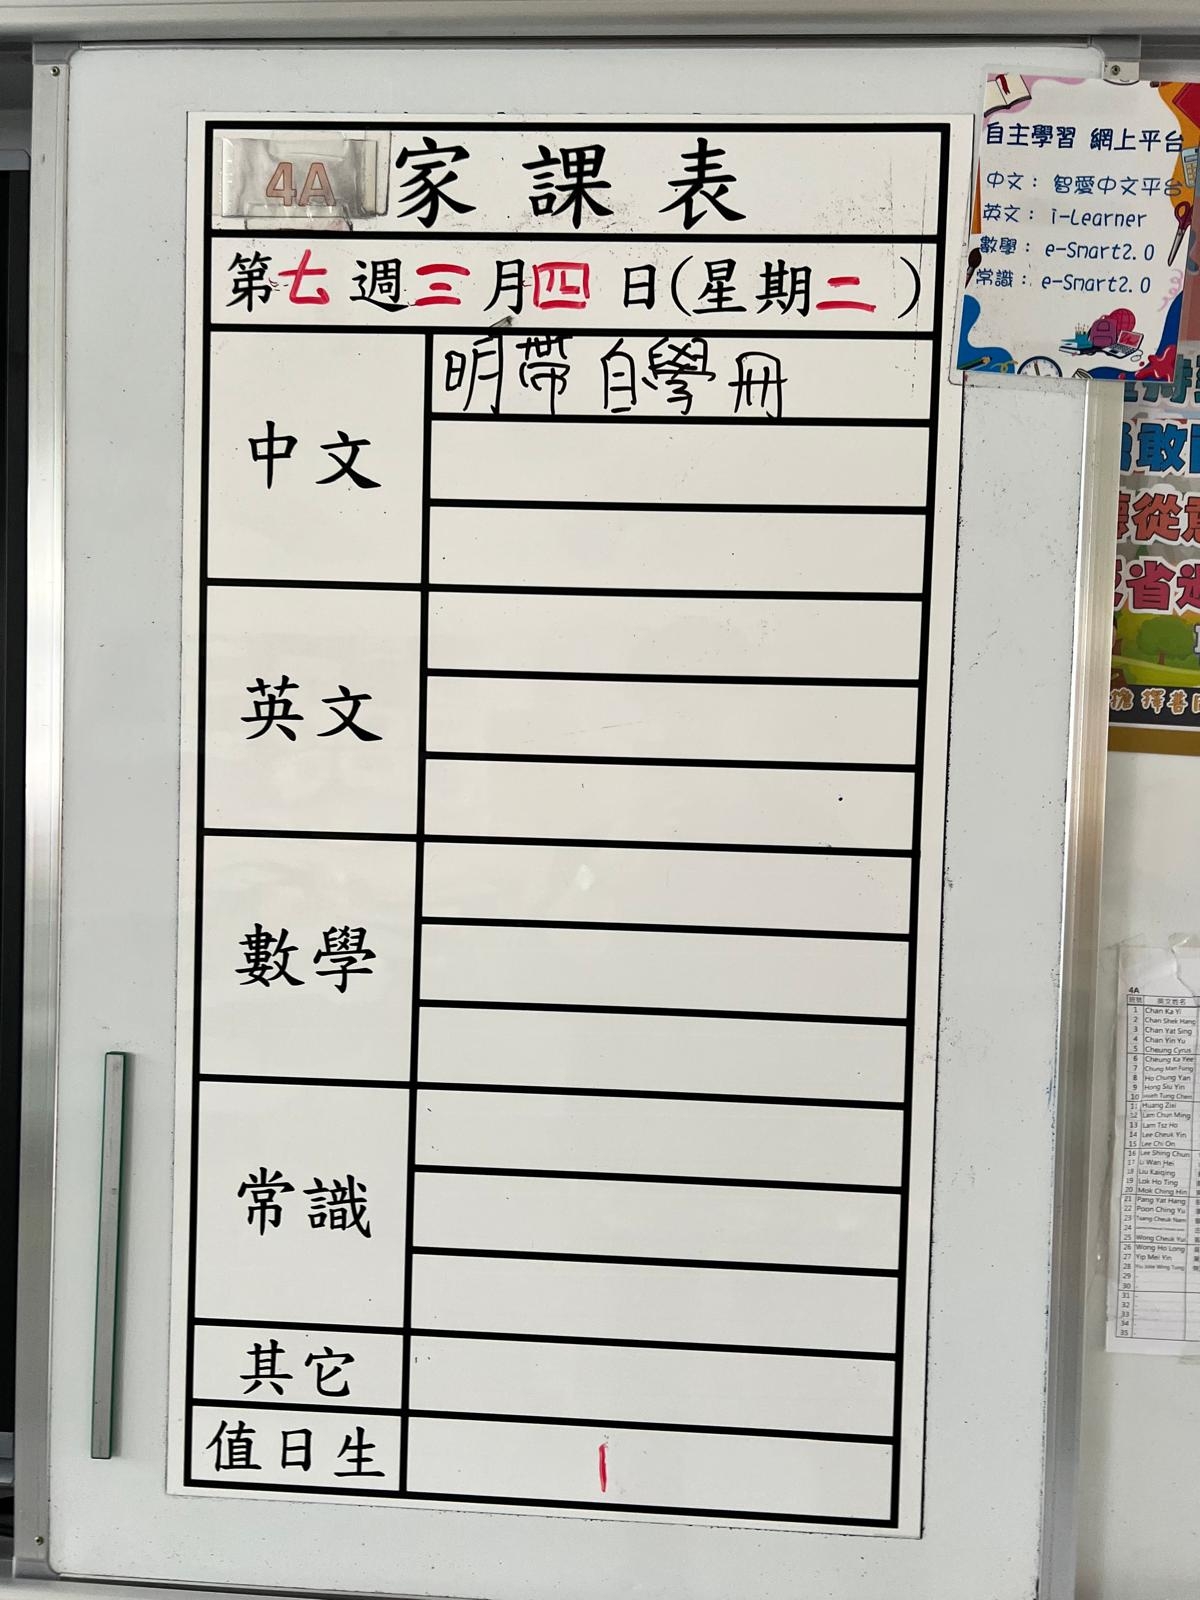 4A 家課表
第七週三月四日(星期二)
中文
明帶自學冊
英文
數學
常識
其它
值日生
1
自主學習 網上平台
中文： 智愛中文平台
英文： i-Learner
數學： e-Smart2.0
常識： e-Smart2.0
敢
從
省
擇善
4A
班號 英文姓名
1 Chan Ka Yi
2 Chan Shek Hang
3 Chan Yat Sing
4 Chan Yin Yu
5 Cheung Cyrus
6 Cheung Ka Yee
7 Chung Man Fung
8 Ho Chung Yan
9 Hong Siu Yin
10 Hsieh Tung Chen
11 Huang Zixi
12 Lam Chun Ming
13 Lam Tsz Ho
14 Lee Cheuk Yin
15 Lee Chi On
16 Lee Shing Chun
17 Li Wan Hei
18 Liu Kaiqing
19 Lok Ho Ting
20 Mok Ching Hin
21 Pang Yat Hang
22 Poon Ching Yu
23 Tsang Cheuk Nam
24
25 Wong Cheuk Yui
26 Wong Ho Long
27 Yip Mei Yin
28
29 -
30 -
31 -
32 -
33 -
34 -
35 -